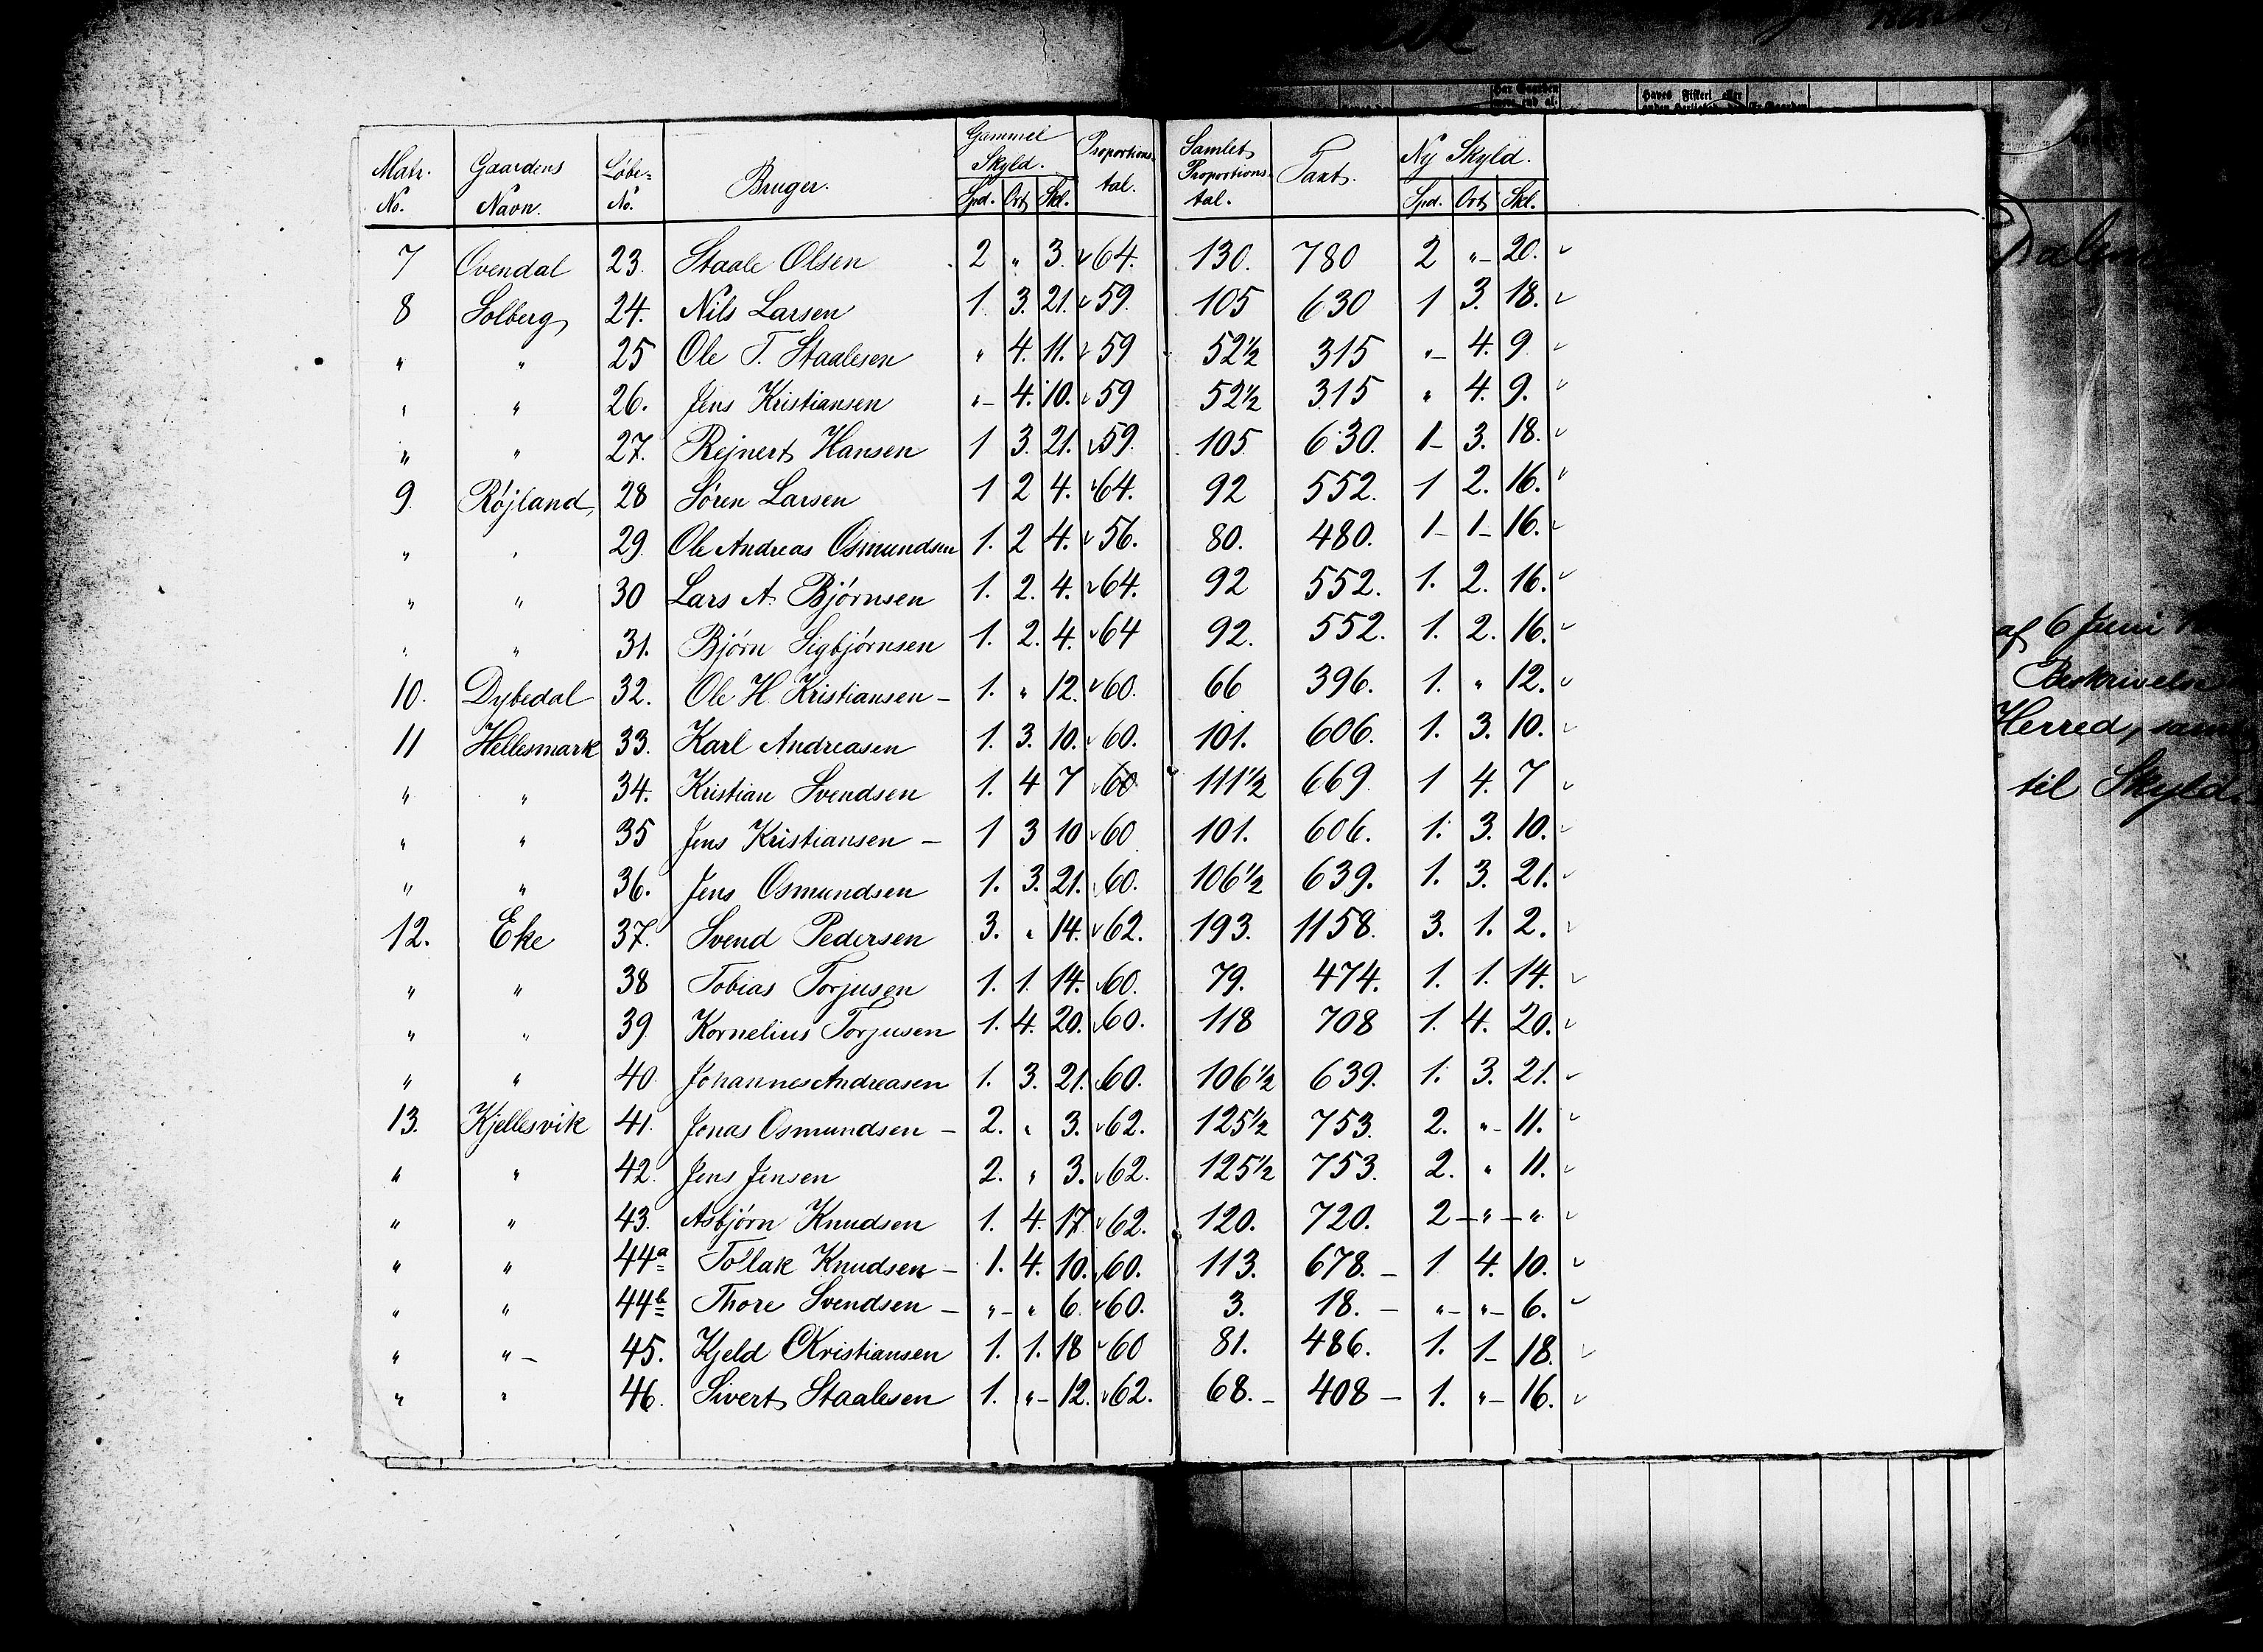 Matr. No. Gaardens Navn. Løbe-No. Bruger. Gammel Skyld. Spd. Ort Skl. Proportions-tal. Samlet Proportions-tal. Taxt. Ny Skyld. Spd. Ort Skl.
7 Ovendal 23. Staale Olsen 2 " 3. 64. 130. 780 2 "- 20.
8 Solberg 24. Nils Larsen 1. 3. 21. 59. 105 630 1 3. 18.
" " 25 Ole T. Staalesen " 4. 11. 59 52½ 315 "- 4. 9
" " 26. Jens Kristiansen "- 4. 10. 59 52½ 315 " 4. 9.
" " 27. Rejnert Hansen 1 3. 21. 59. 105 630. 1- 3. 18.
9. Røjland 28 Søren Larsen 1 2 4. 64. 92 552. 1 2. 16.
" " 29. Ole Andreas Osmundsen 1. 2 4. 56. 80. 480. 1- 1- 16.
" " 30 Lars A. Bjørnsen 1. 2. 4. 64. 92 552. 1. 2. 16.
" " 31. Bjørn Sigbjørnsen 1. 2. 4. 64 92. 552. 1. 2. 16.
10. Dybedal 32. Ole H. Kristiansen - 1. " 12. 60. 66 396. 1. " 12.
11 Hellesmark 33. Karl Andreasen 1. 3. 10. 60. 101. 606. 1. 3. 10.
" " 34. Kristian Svendsen 1. 4 7 60 111½ 669. 1 4. 7
" " 35 Jens Kristiansen - 1 3 10 60 101. 606. 1. 3. 10.
" " 36. Jens Osmundsen 1. 3. 21. 60. 106½ 639. 1. 3. 21.
12. Eke 37. Svend Pedersen 3. " 14. 62. 193. 1158. 3. 1. 2.
" " 38 Tobias Torjusen 1. 1. 14. 60. 79. 474. 1. 1. 14.
" " 39 Kornelius Torjusen 1. 4. 20. 60. 118 708 1. 4. 20.
" " 40 Johannes Andreasen 1. 3. 21. 60. 106½ 639. 1. 3. 21.
13. Kjellesvik 41. Jonas Osmundsen - 2. " 3. 62. 125½ 753. 2. "- 11.
" " 42. Jens Jensen 2. " 3. 62. 125½ 753. 2. " 11.
" " 43. Asbjørn Knudsen 1. 4. 17. 62. 120. 720. 2 - " - "
" " 44a Tollak Knudsen - 1. 4. 10. 60. 113. 678. - 1 4. 10.
" " 44b Thore Svendsen - "- " 6. 60. 3. 18. - "- "- 6.
" " - 45. Kjeld Kristiansen 1. 1. 18 60 81. 486. 1. 1- 18.
" " 46. Sivert Staalesen 1. "- 12. 62. 68. - 408 - 1. "- 16.
af 6 Juni
Beskrivelse
Herred,
til Skyld